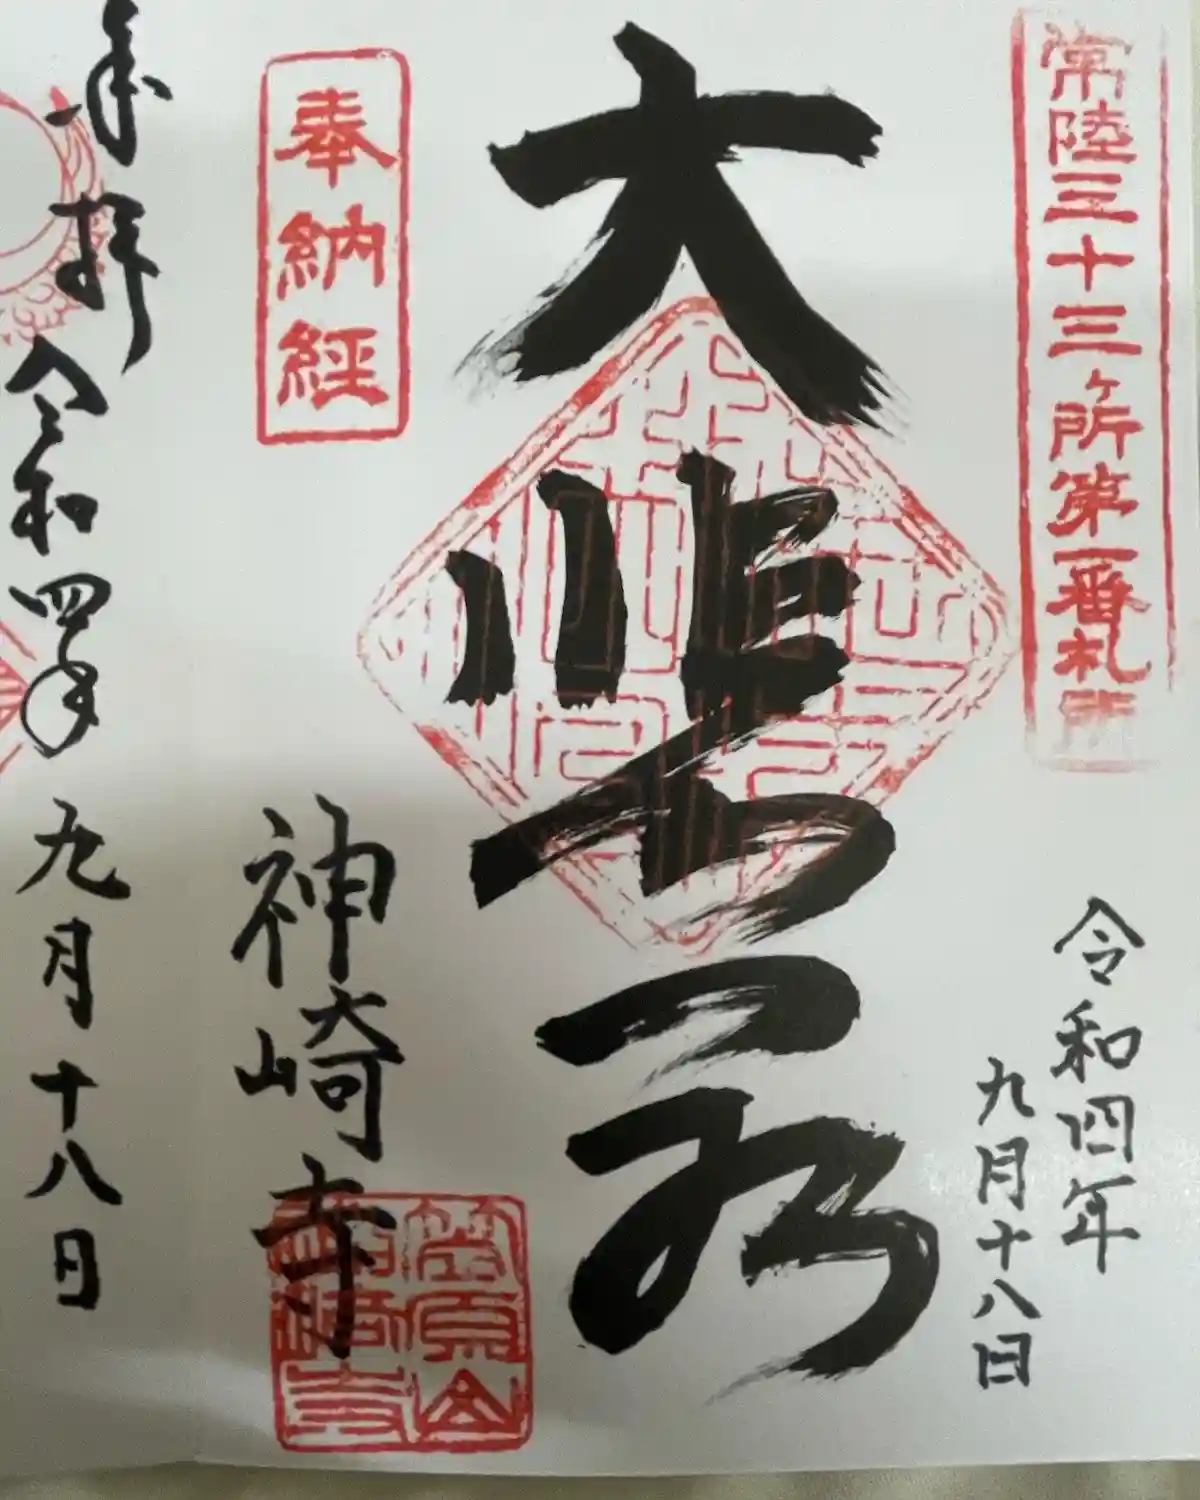 常陸三十三ヶ所第一番札所
令和四年
九月十八日
大悲
奉納経
神崎寺
笠原山
神崎寺
奉拝
令和四年九月十八日